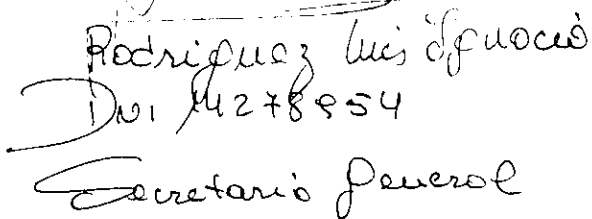 Rodriguez Luis Ignacio
DNI 14278954
Secretario General